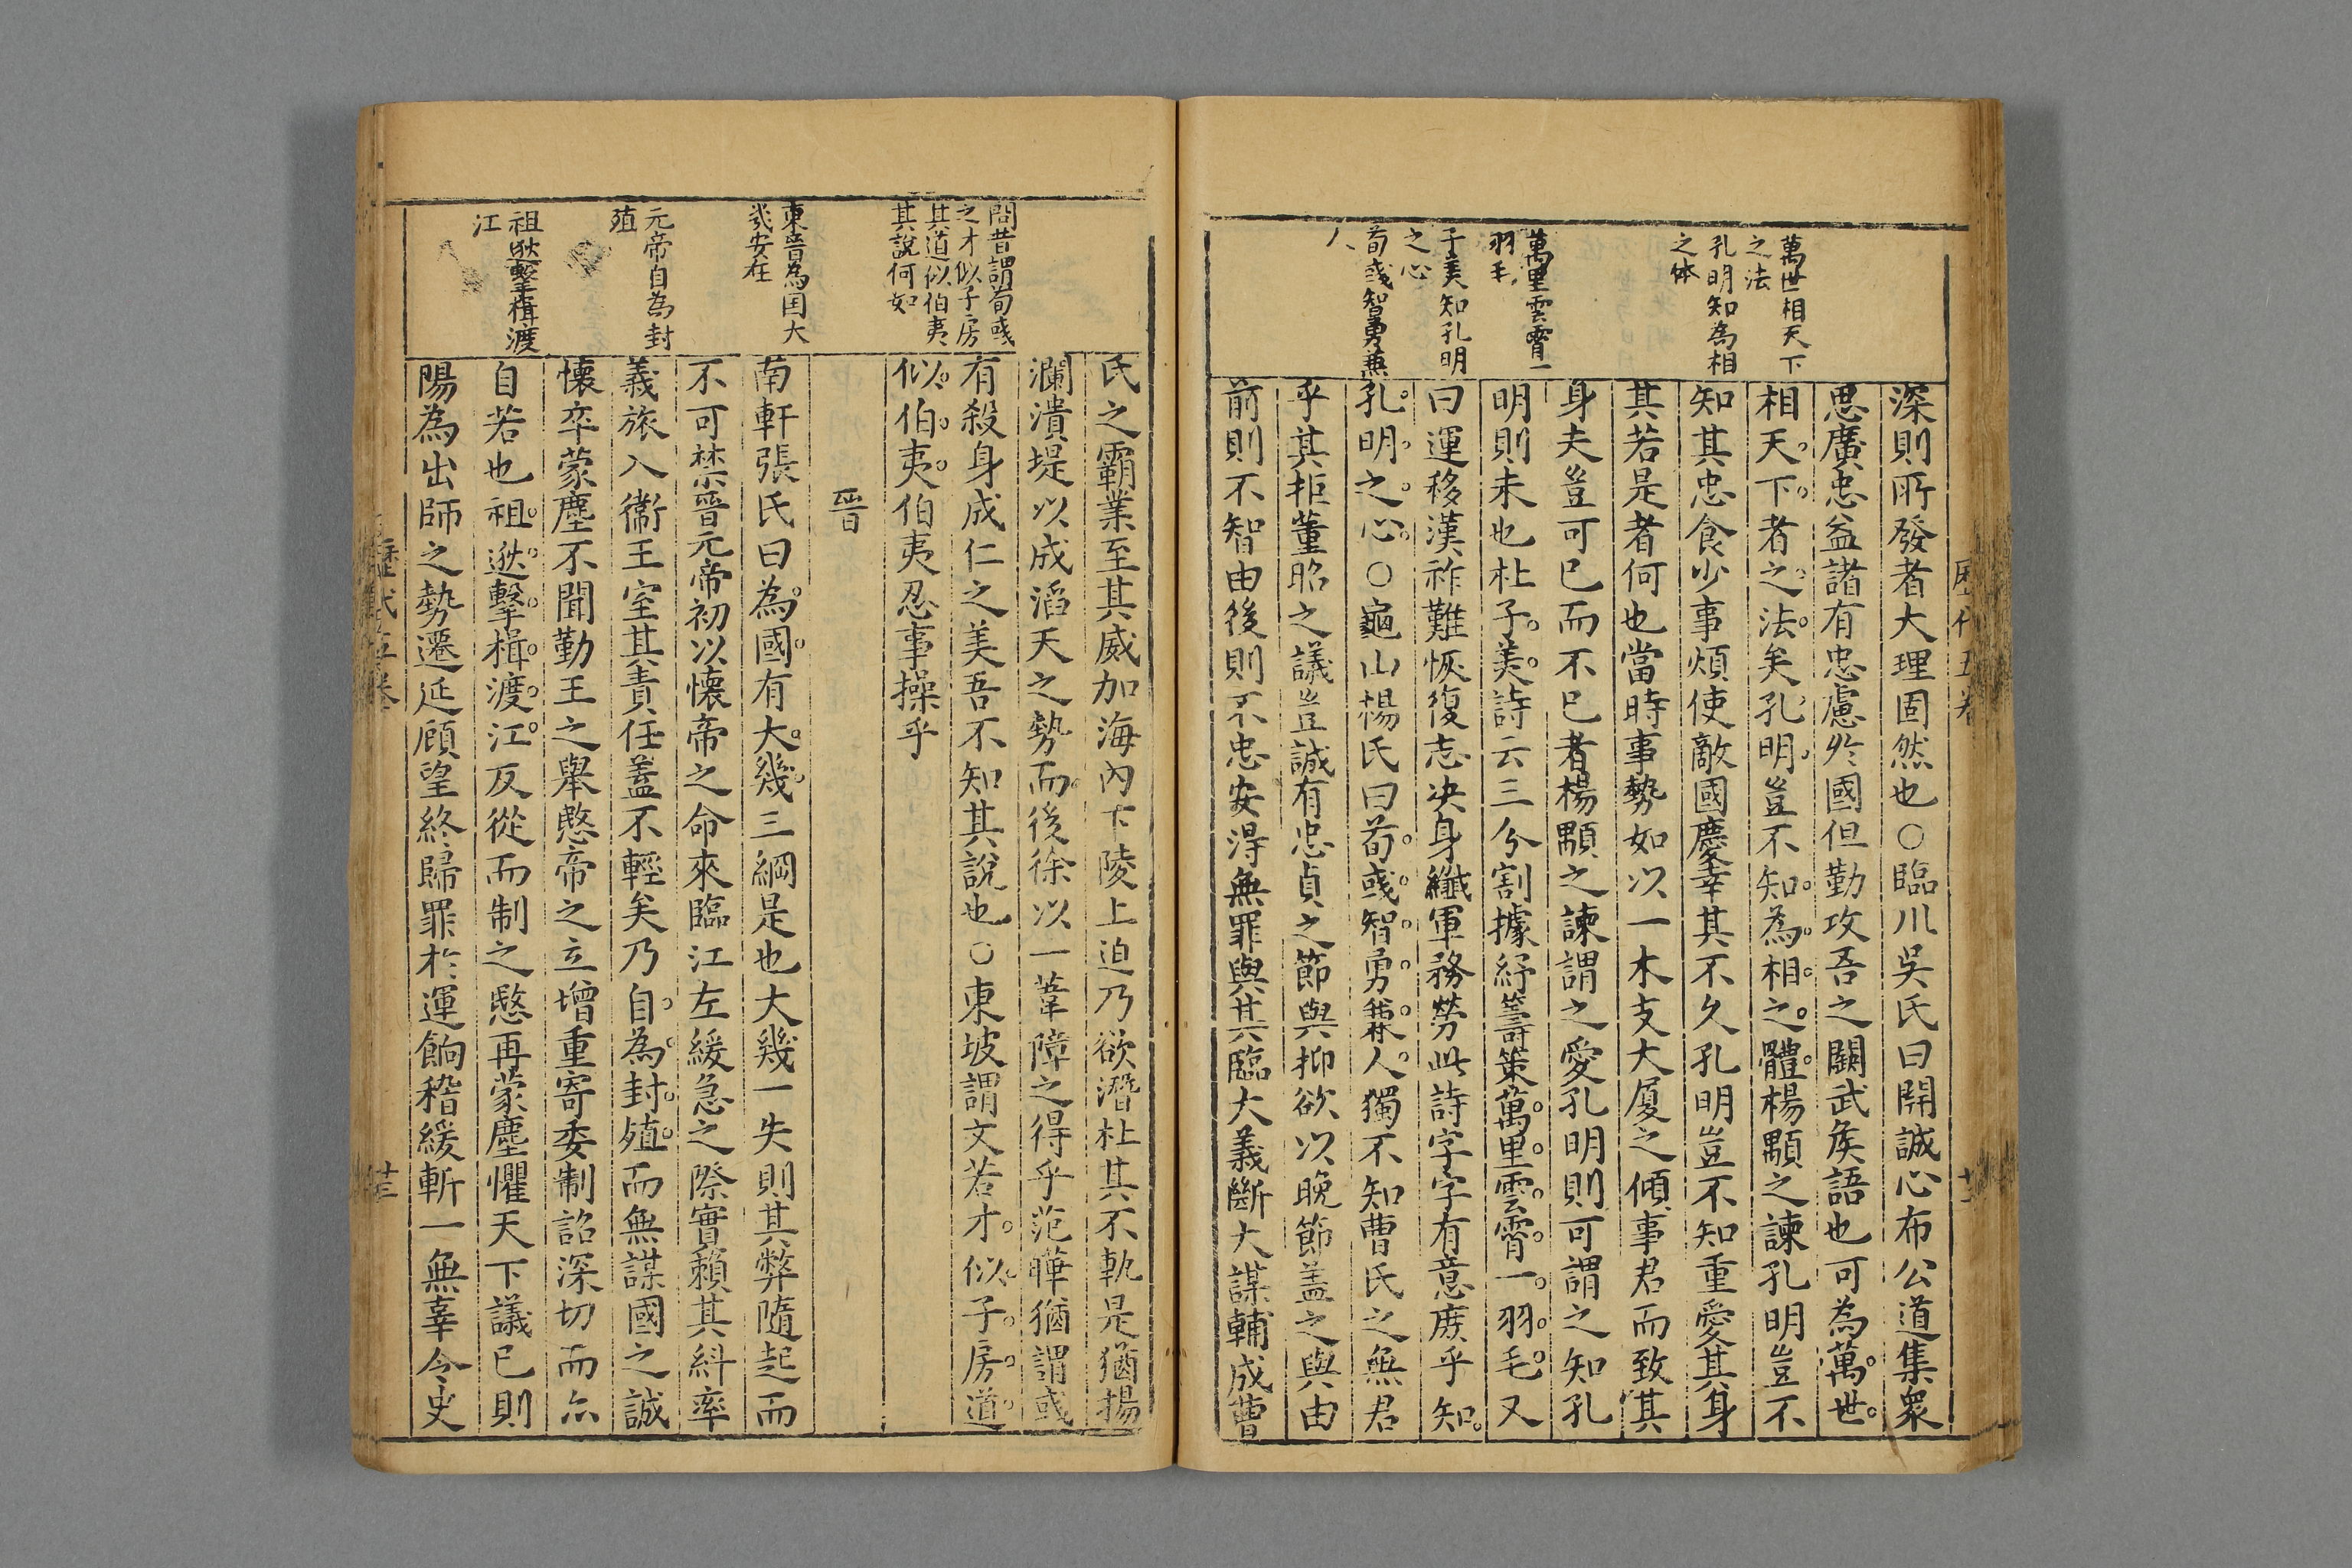 歷代五卷
廿二
萬世相天下
之法
孔明知為相
之体
萬里雲霄一
羽毛
子美知孔明
之心
荀彧智勇蕪
人
深則所發者大理固然也○臨川吳氏曰開誠心布公道集衆
思廣忠益諸有忠慮於國但勤攻吾之闕武矦語也可為萬世
相天下者之法矣孔明豈不知為相之體楊顒之諫孔明豈不
知其忠食少事煩使敵國慶幸其不久孔明豈不知重愛其身
其若是者何也當時事勢如以一木支大厦之傾事君而致其
身夫豈可已而不已者楊顒之諫謂之愛孔明則可謂之知孔
明則未也杜子美詩云三分割據紆籌策萬里雲霄一羽毛又
曰運移漢祚難恢復志决身纎軍務勞此詩字字有意庻乎知
孔明之心○龜山楊氏曰荀彧智勇蕪人獨不知曹氏之無君
乎其拒董昭之議豈誠有忠貞之節與抑欲以晚節盖之與由
前則不智由後則不忠安得無罪與其臨大義斷大謀輔成曹
問昔謂荀彧
之才似子房
其道似伯夷
其說何如
東晉為国大
㡬安在
元帝自為封
殖
祖逖擊楫渡
江
氏之霸業至其威加海內下陵上迫乃欲潛杜其不軌是猶揚
瀾潰堤以成滔天之勢而後徐以一葦障之得乎范曄猶謂彧
有殺身成仁之美吾不知其說也○東坡謂文若才似子房道
似伯夷伯夷忍事操乎
晉
南軒張氏曰為國有大幾三綱是也大幾一失則其弊隨起而
不可禁晉元帝初以懷帝之命來臨江左緩急之際實賴其糾率
義旅入衞王室其責任蓋不輕矣乃自為封殖而無謀國之誠
懷卒蒙塵不聞勤王之舉愍帝之立增重寄委制詔深切而亦
自若也祖逖擊楫渡江反從而制之愍再蒙塵懼天下議己則
陽為出師之勢遷延顧望終歸罪於運餉稽緩斬一無辜令史
歷代五卷
廿三